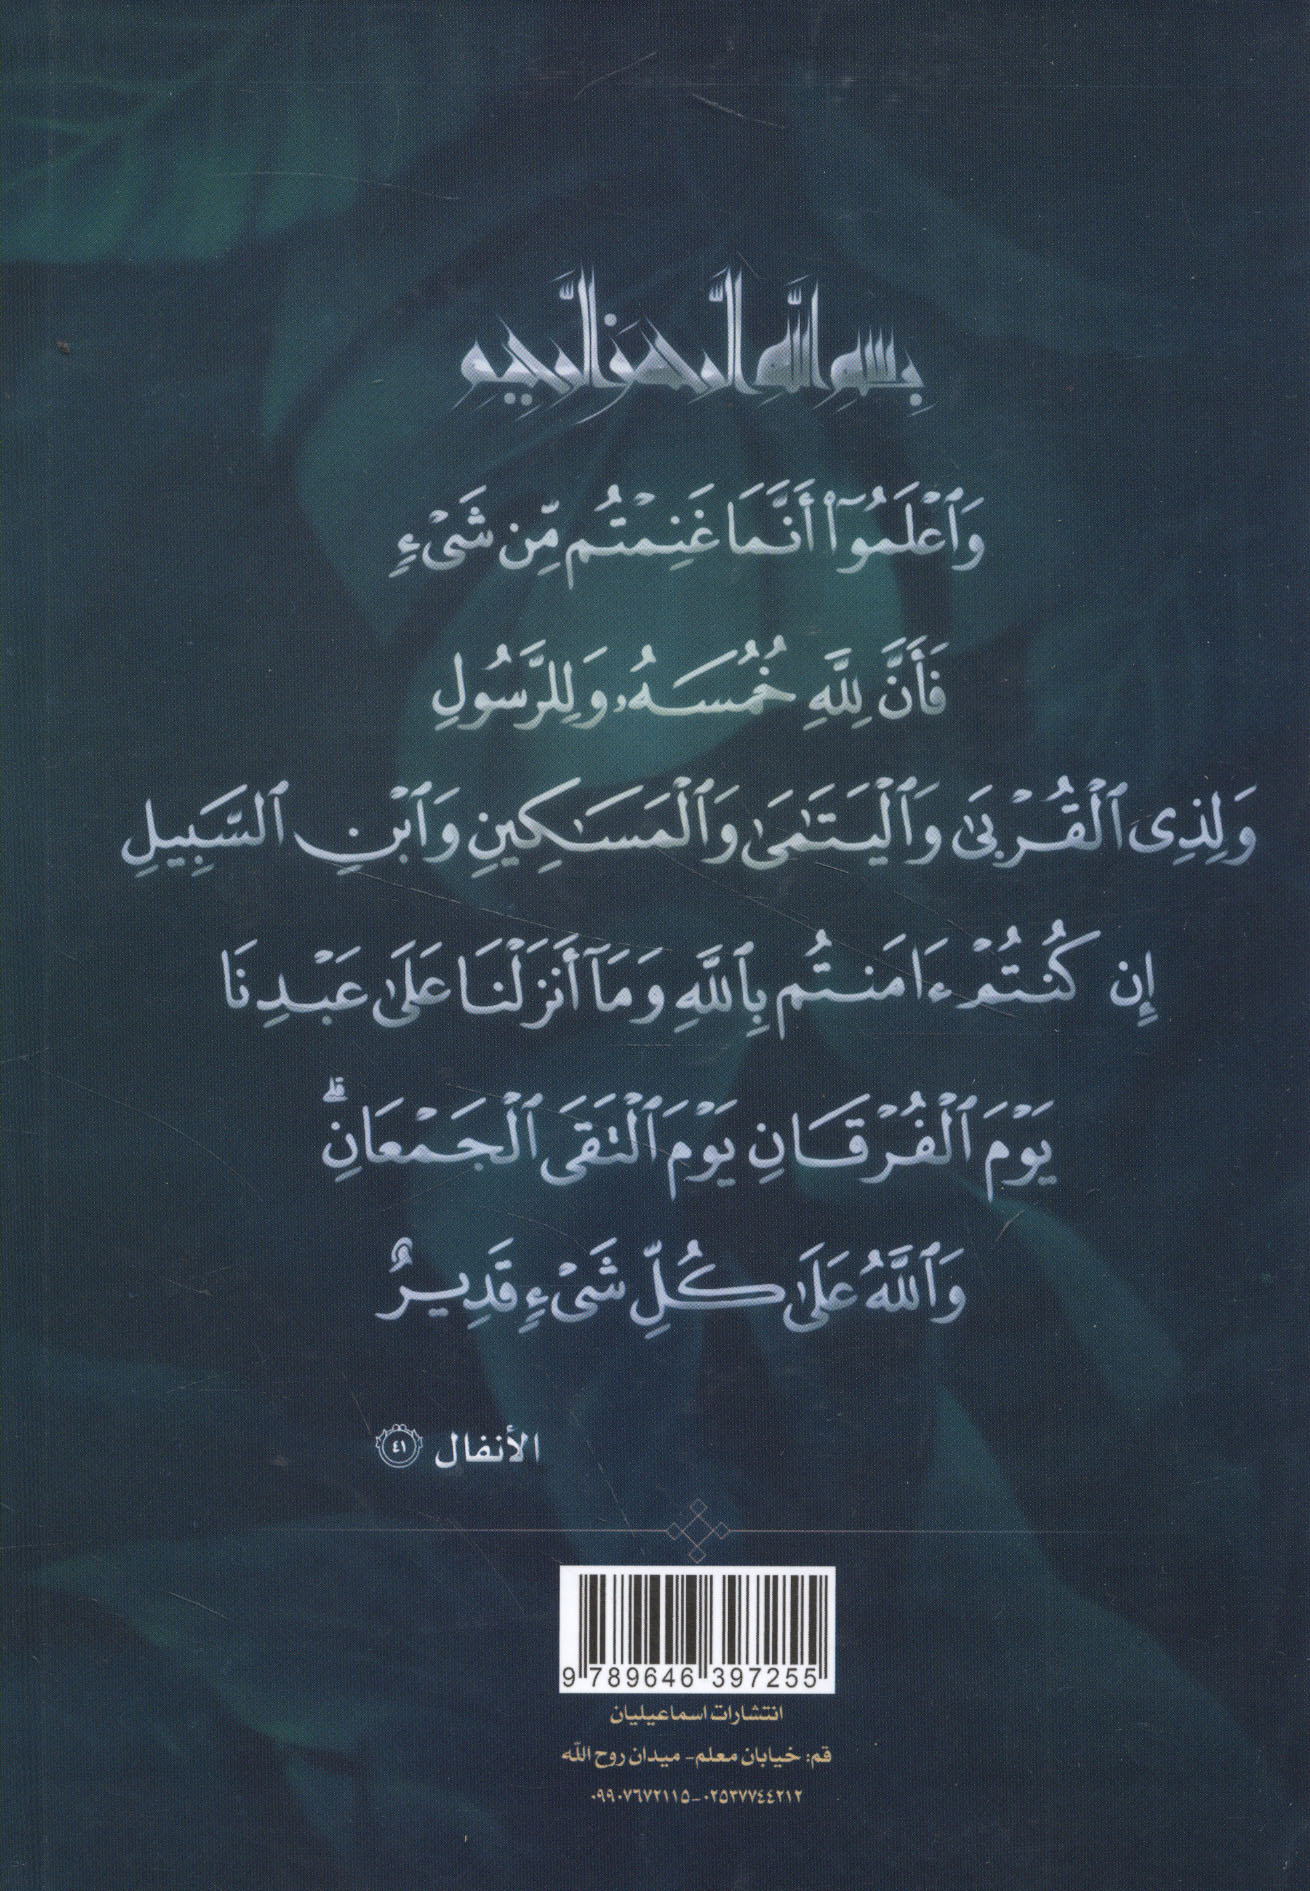 بِسْمِ اللَّهِ الرَّحْمَنِ الرَّحِيمِ
وَٱعْلَمُوٓا۟ أَنَّمَا غَنِمْتُم مِّن شَىْءٍ
فَأَنَّ لِلَّهِ خُمُسَهُۥ وَلِلرَّسُولِ
وَلِذِى ٱلْقُرْبَىٰ وَٱلْيَتَـٰمَىٰ وَٱلْمَسَـٰكِينِ وَٱبْنِ ٱلسَّبِيلِ
إِن كُنتُمْ ءَامَنتُم بِٱللَّهِ وَمَآ أَنزَلْنَا عَلَىٰ عَبْدِنَا
يَوْمَ ٱلْفُرْقَانِ يَوْمَ ٱلْتَقَى ٱلْجَمْعَانِ ۗ
وَٱللَّهُ عَلَىٰ كُلِّ شَىْءٍ قَدِيرٌ
الأنفال ٤١
9 789646 397255
انتشارات اسماعیلیان
قم: خیابان معلم- میدان روح الله
۰۲۵۳۷۷٤٤۲۱۲-۰۹۹۰۷٦۷۲۱۱۵